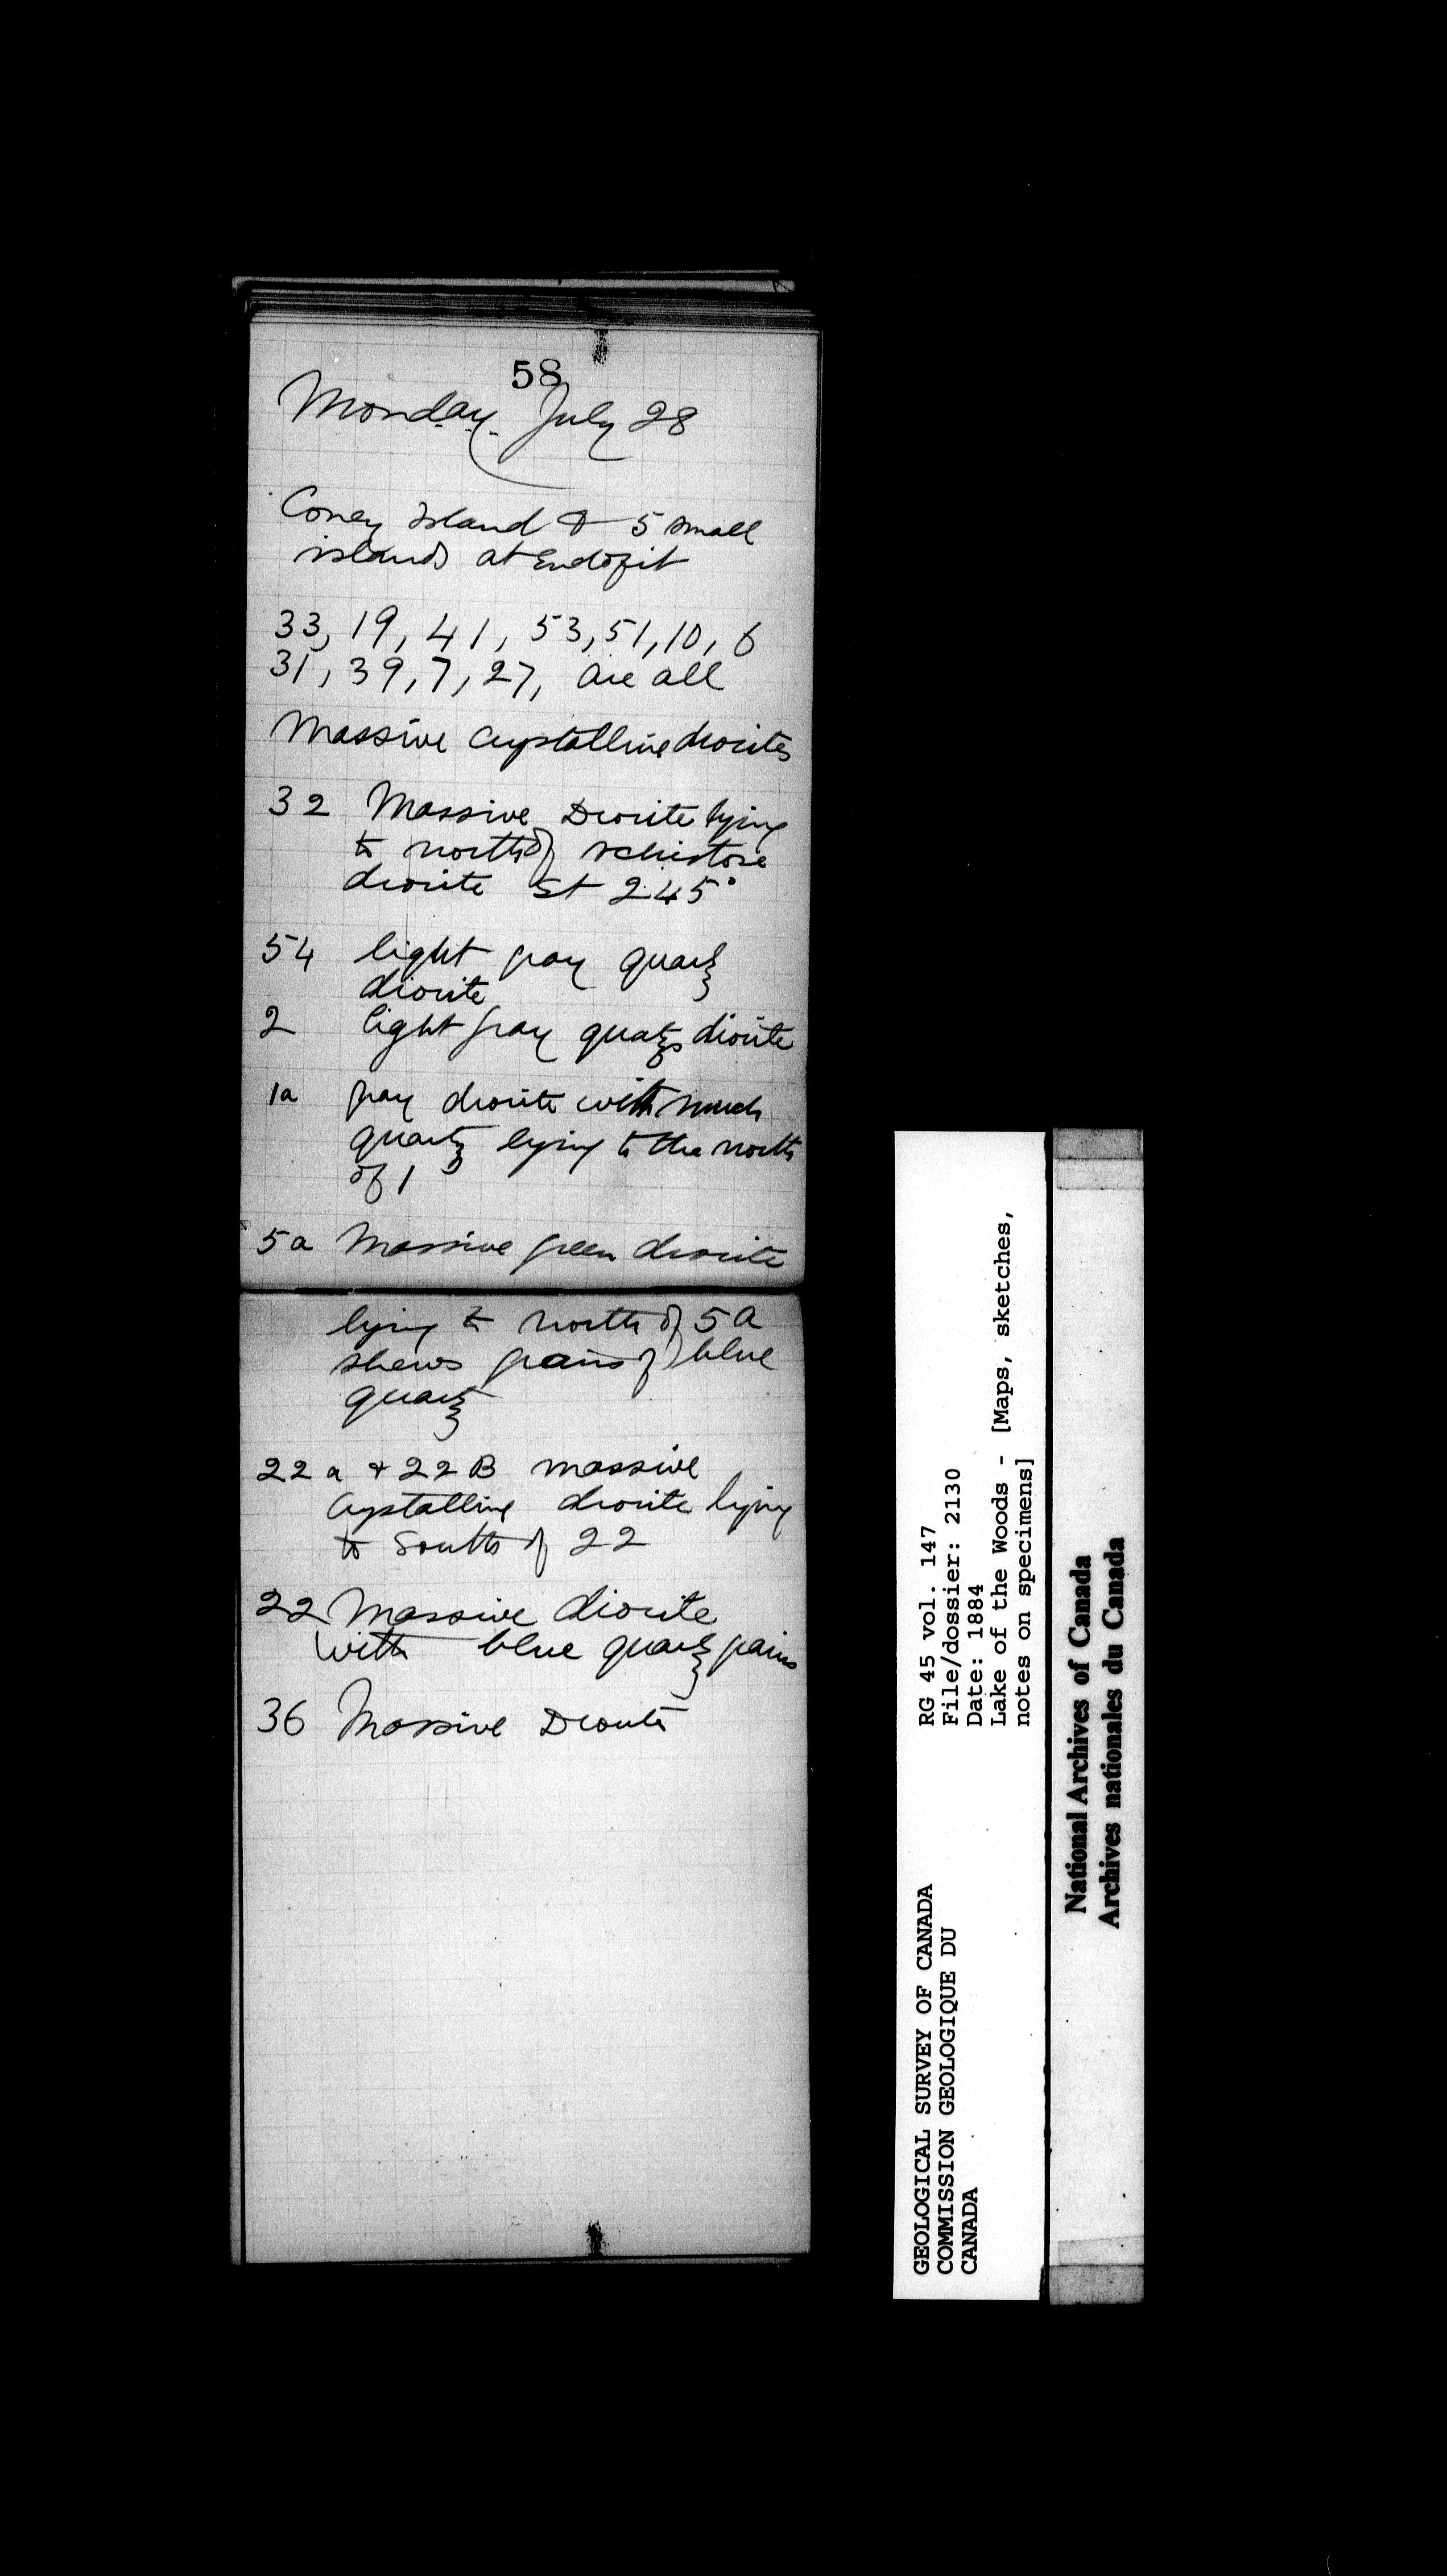 58
Monday. July 28
Coney Island & 5 small
islands at End of it
33, 19, 41, 53, 51, 10, 6
31, 39, 7, 27, are all
Massive crystalline diorites
32 Massive Diorite lying
to north of schistose
diorite St 245°
54 light gray quartz
diorite
2 light gray quartz diorite
1a gray diorite with much
quartz lying to the north
of 1
5a Massive green diorite
lying to north of 5a
shews grains of blue
quartz
22a & 22B massive
crystalline diorite lying
to South of 22
22 Massive diorite
with blue quartz grains
36 Massive Diorite
RG 45 vol. 147
File/dossier: 2130
Date: 1884
Lake of the Woods - [Maps, sketches,
notes on specimens]
GEOLOGICAL SURVEY OF CANADA
COMMISSION GEOLOGIQUE DU
CANADA
National Archives of Canada
Archives nationales du Canada